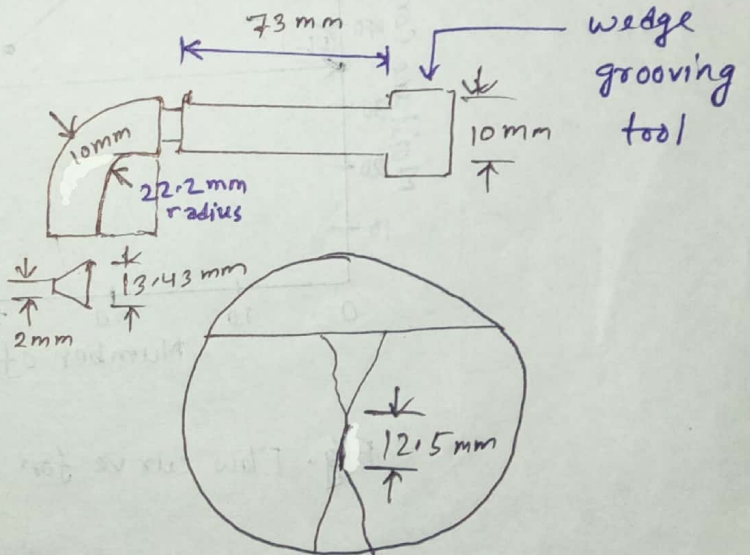 73 mm
wedge
grooving
tool
10mm
10 mm
22.2mm
radius
13.43 mm
2mm
12.5 mm